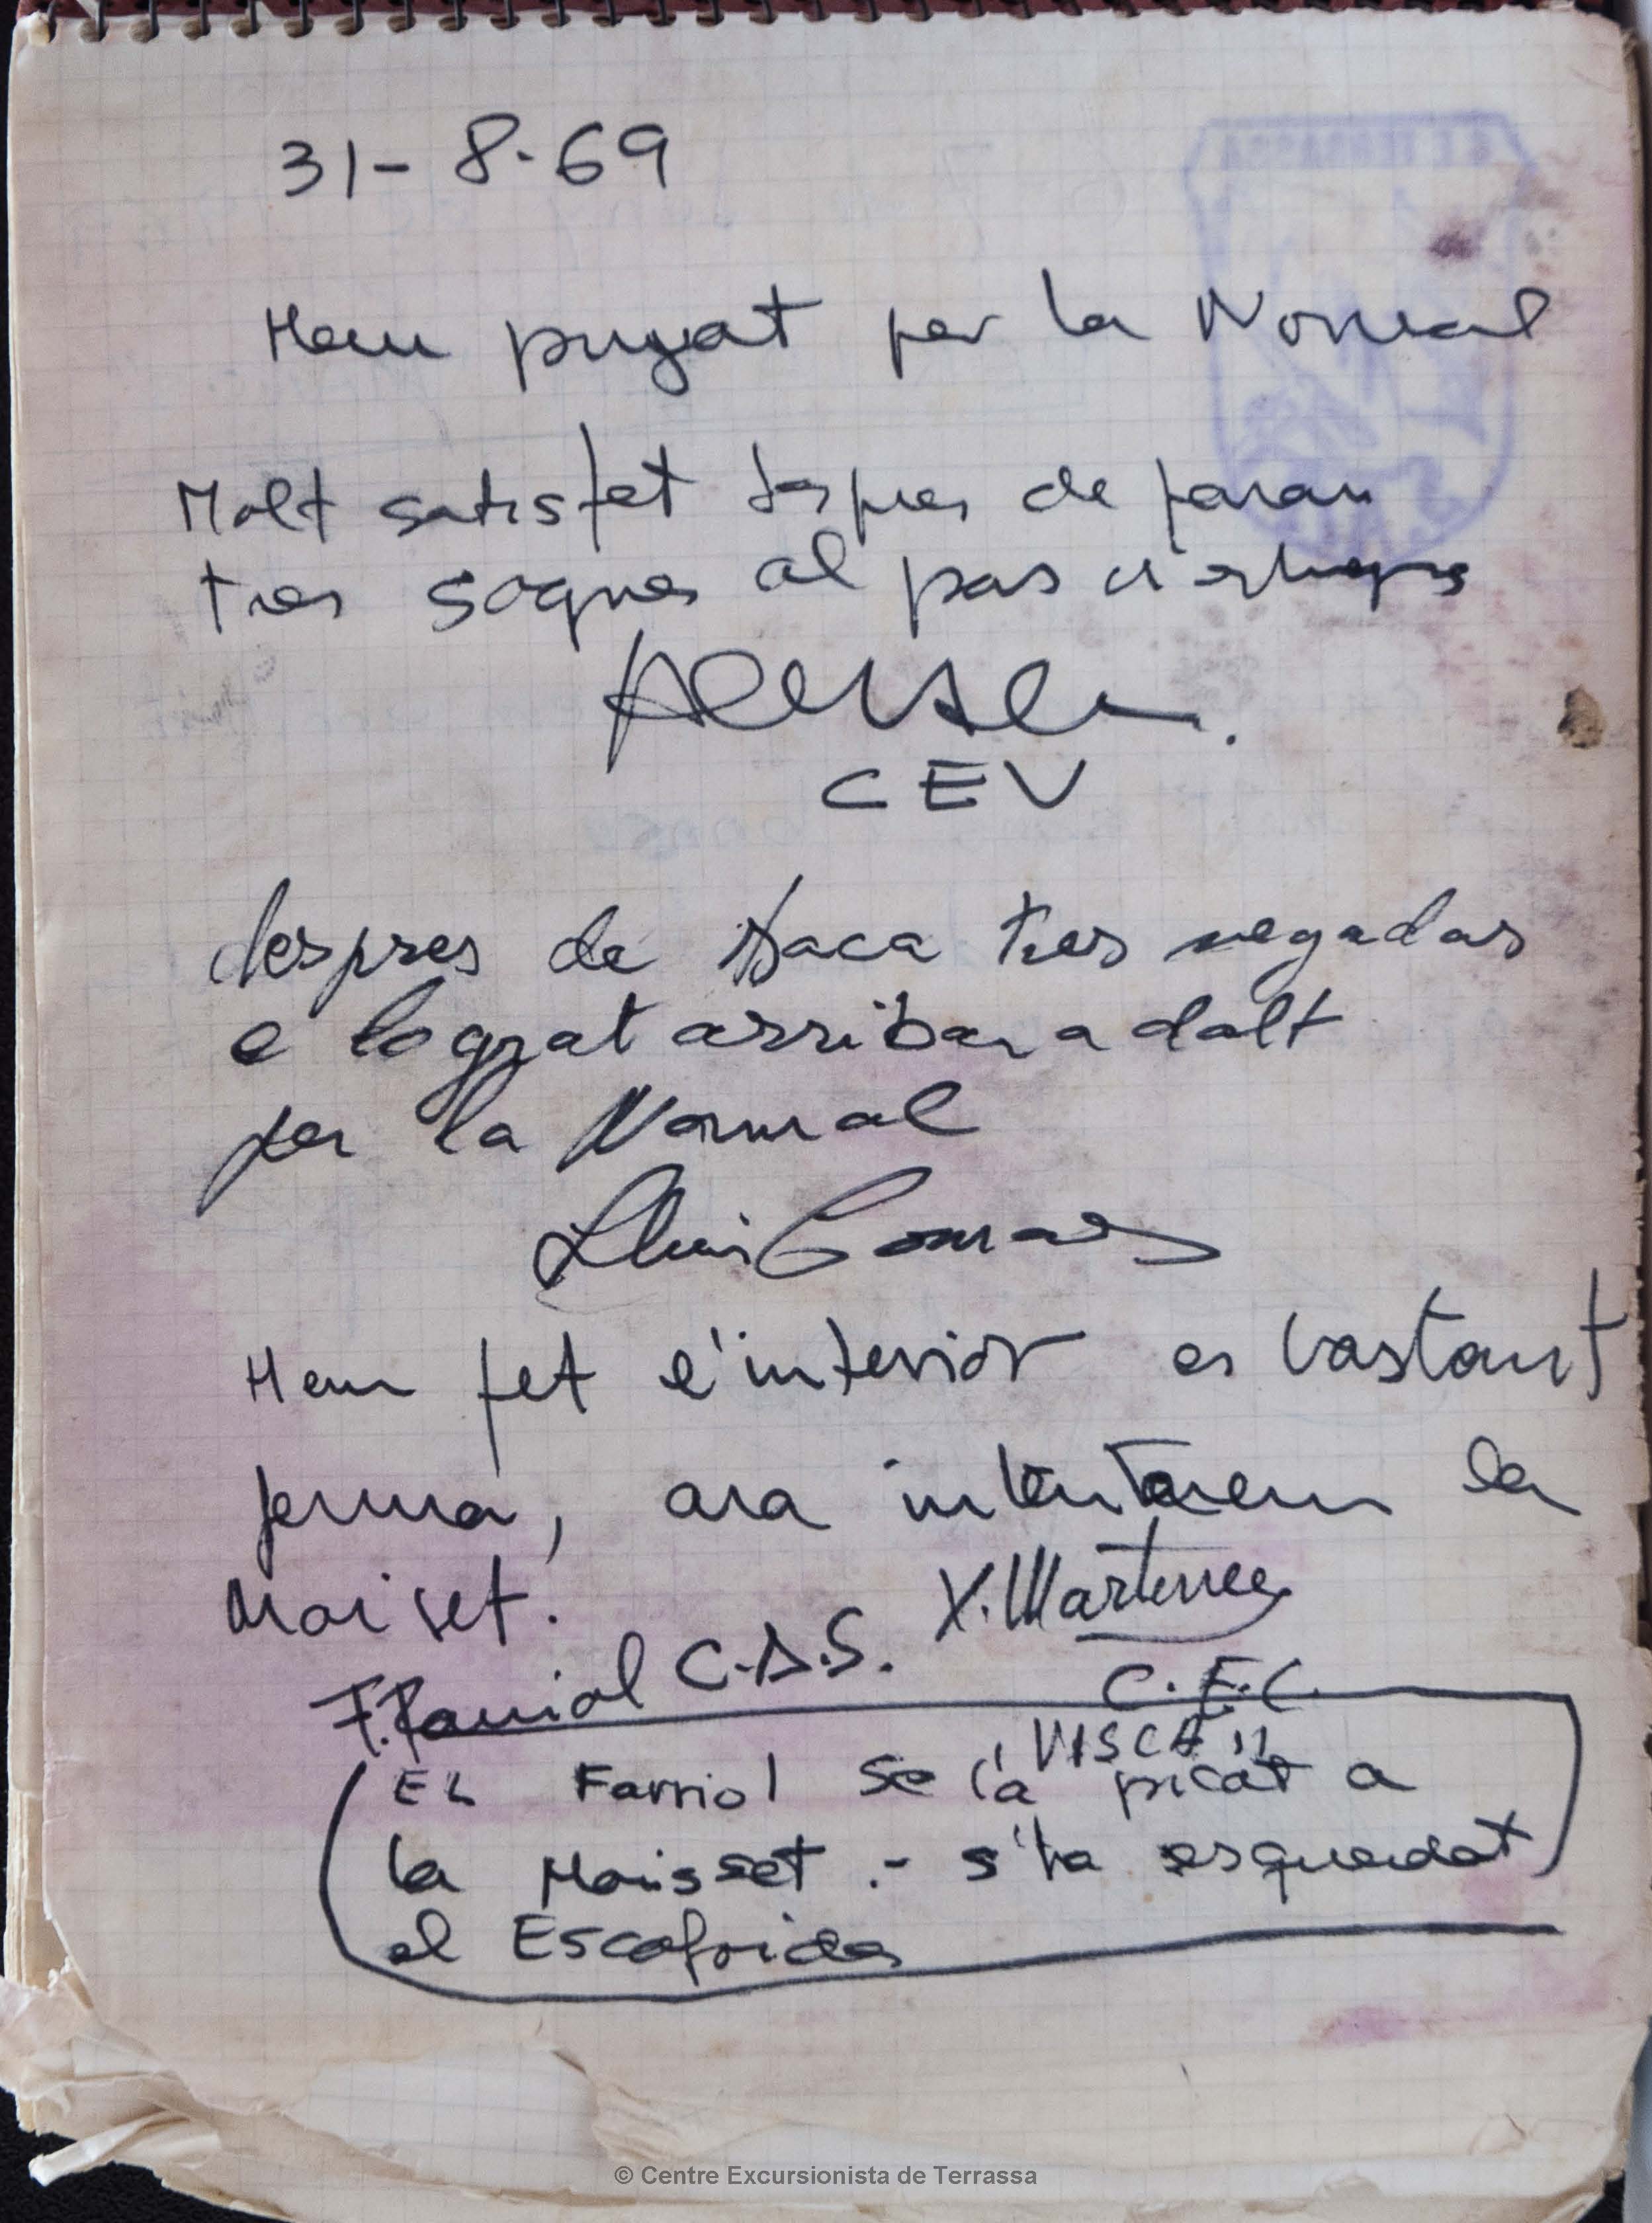 31-8-69
Hem pujat per la Normal
Molt satisfet despres de parar
tres sogues al pas
CEV
despres de tres vegadas
e lograt arribar a dalt
per la Normal
Lluis Comas
Hem fet l'interior es bastant
ferma, ara intentarem la
Moiset.
X. Martinez
F. Farriol C.A.S.
C.E.C.
VISCA!!
EL Farriol se l'a picat a
la Moisset.- s'ha esquedat
el Escofrides
© Centre Excursionista de Terrassa